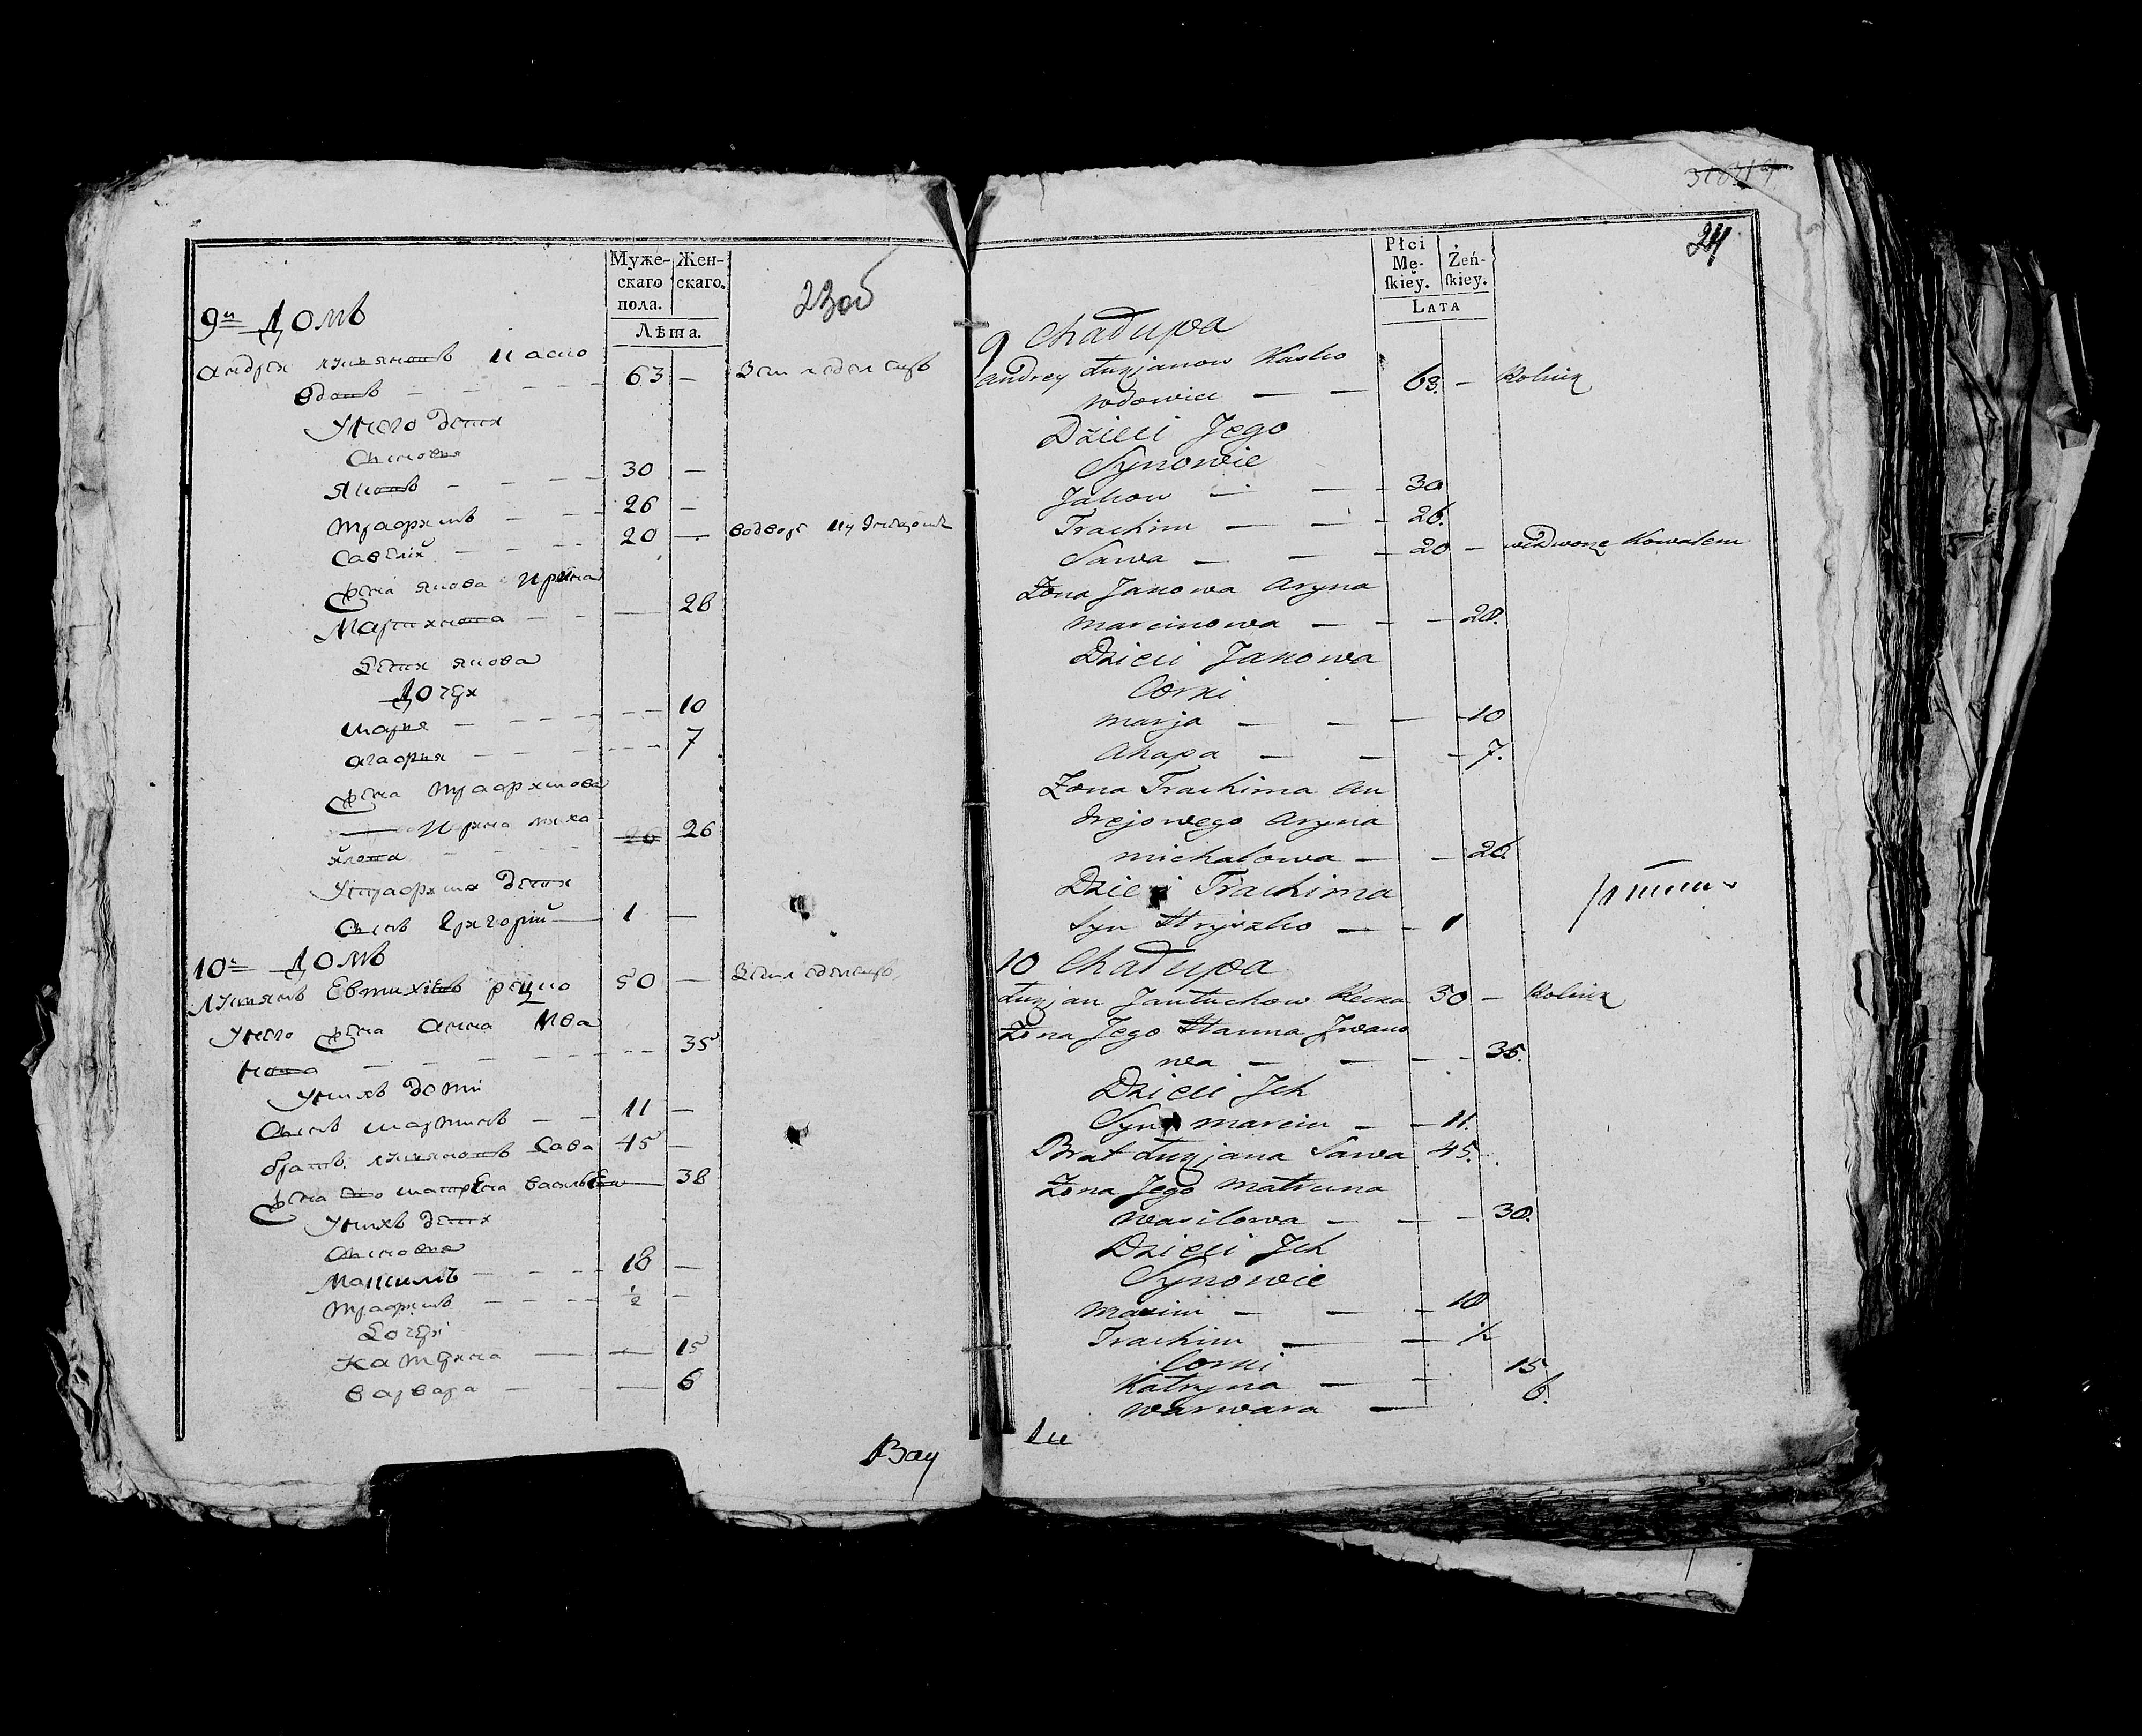 Муже-
скаго
пола.
Жен-
скаго.
Лѣта.
23об
9й Домъ
Андрей Лукьяновъ Каско
вдовъ — 63 — Земледелецъ
У него дети
Сыновья
Яковъ — 30 —
Трафимъ — 26 —
Савелій — 20 — в дворе кузнецомъ
жена Якова Ирина
Мартинова — 28
Дети Якова
Дочери
Марья — 10
Агафья — 7
жена Трафимова
Ирина Миха
йлова — 26
У Трафима дети
Сынъ Григорій — 1 —
10й Домъ
Лукьянъ Евтихіевъ Рецко 50 — Земледелецъ
У него жена Анна Ива
нова — 35
У нихъ дети
Сынъ Мартинъ — 11 —
братъ Лукьяновъ Сава 45 —
жена его Матрена Васильева — 38
У нихъ дети
Сыновья
Максимъ — 18 —
Трафимъ — ½ —
Дочери
Катерина — 15
Варвара — 6
Płci
Mę-
ſkiey.
Żeń-
ſkiey.
LATA
24
9 Chałupa
Andrey Łukjanow Kasko
wdowiec — — 63. — Rolnik
Dzieci Jego
Synowie
Jakow — — 30
Trachim — — 26.
Sawa — — 20 — we Dworze Kowalem
Żona Jakowa Aryna
Marcinowa — — 28.
Dzieci Jakowa
Corki
Marja — — 10
Ahapa — — 7.
Żona Trachima An
drejowego Aryna
Michałowa — — 26.
Dzieci Trachima
Syn Hryszko — — 1
10 Chałupa
Łukjan Jautuchow Recka 50 — Rolnik
Żona Jego Hanna Jwano
wa — — 35.
Dzieci Jch
Syn Marcin — — 11.
Brat Łukjana Sawa 45.
Żona Jego Matruna
Wasilowa — — 38.
Dzieci Jch
Synowie
Maxim — — 18
Trachim — — ½
Corki
Katryna — — 15
Warwara — 6.